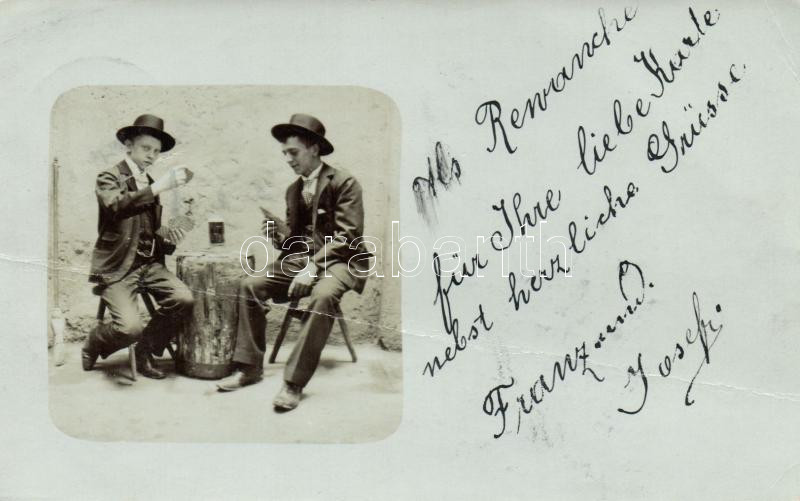 Als Rewanche
für Ihre liebe Karte
nebst herzliche Grüsse
Franz und
Josef.
darabanth